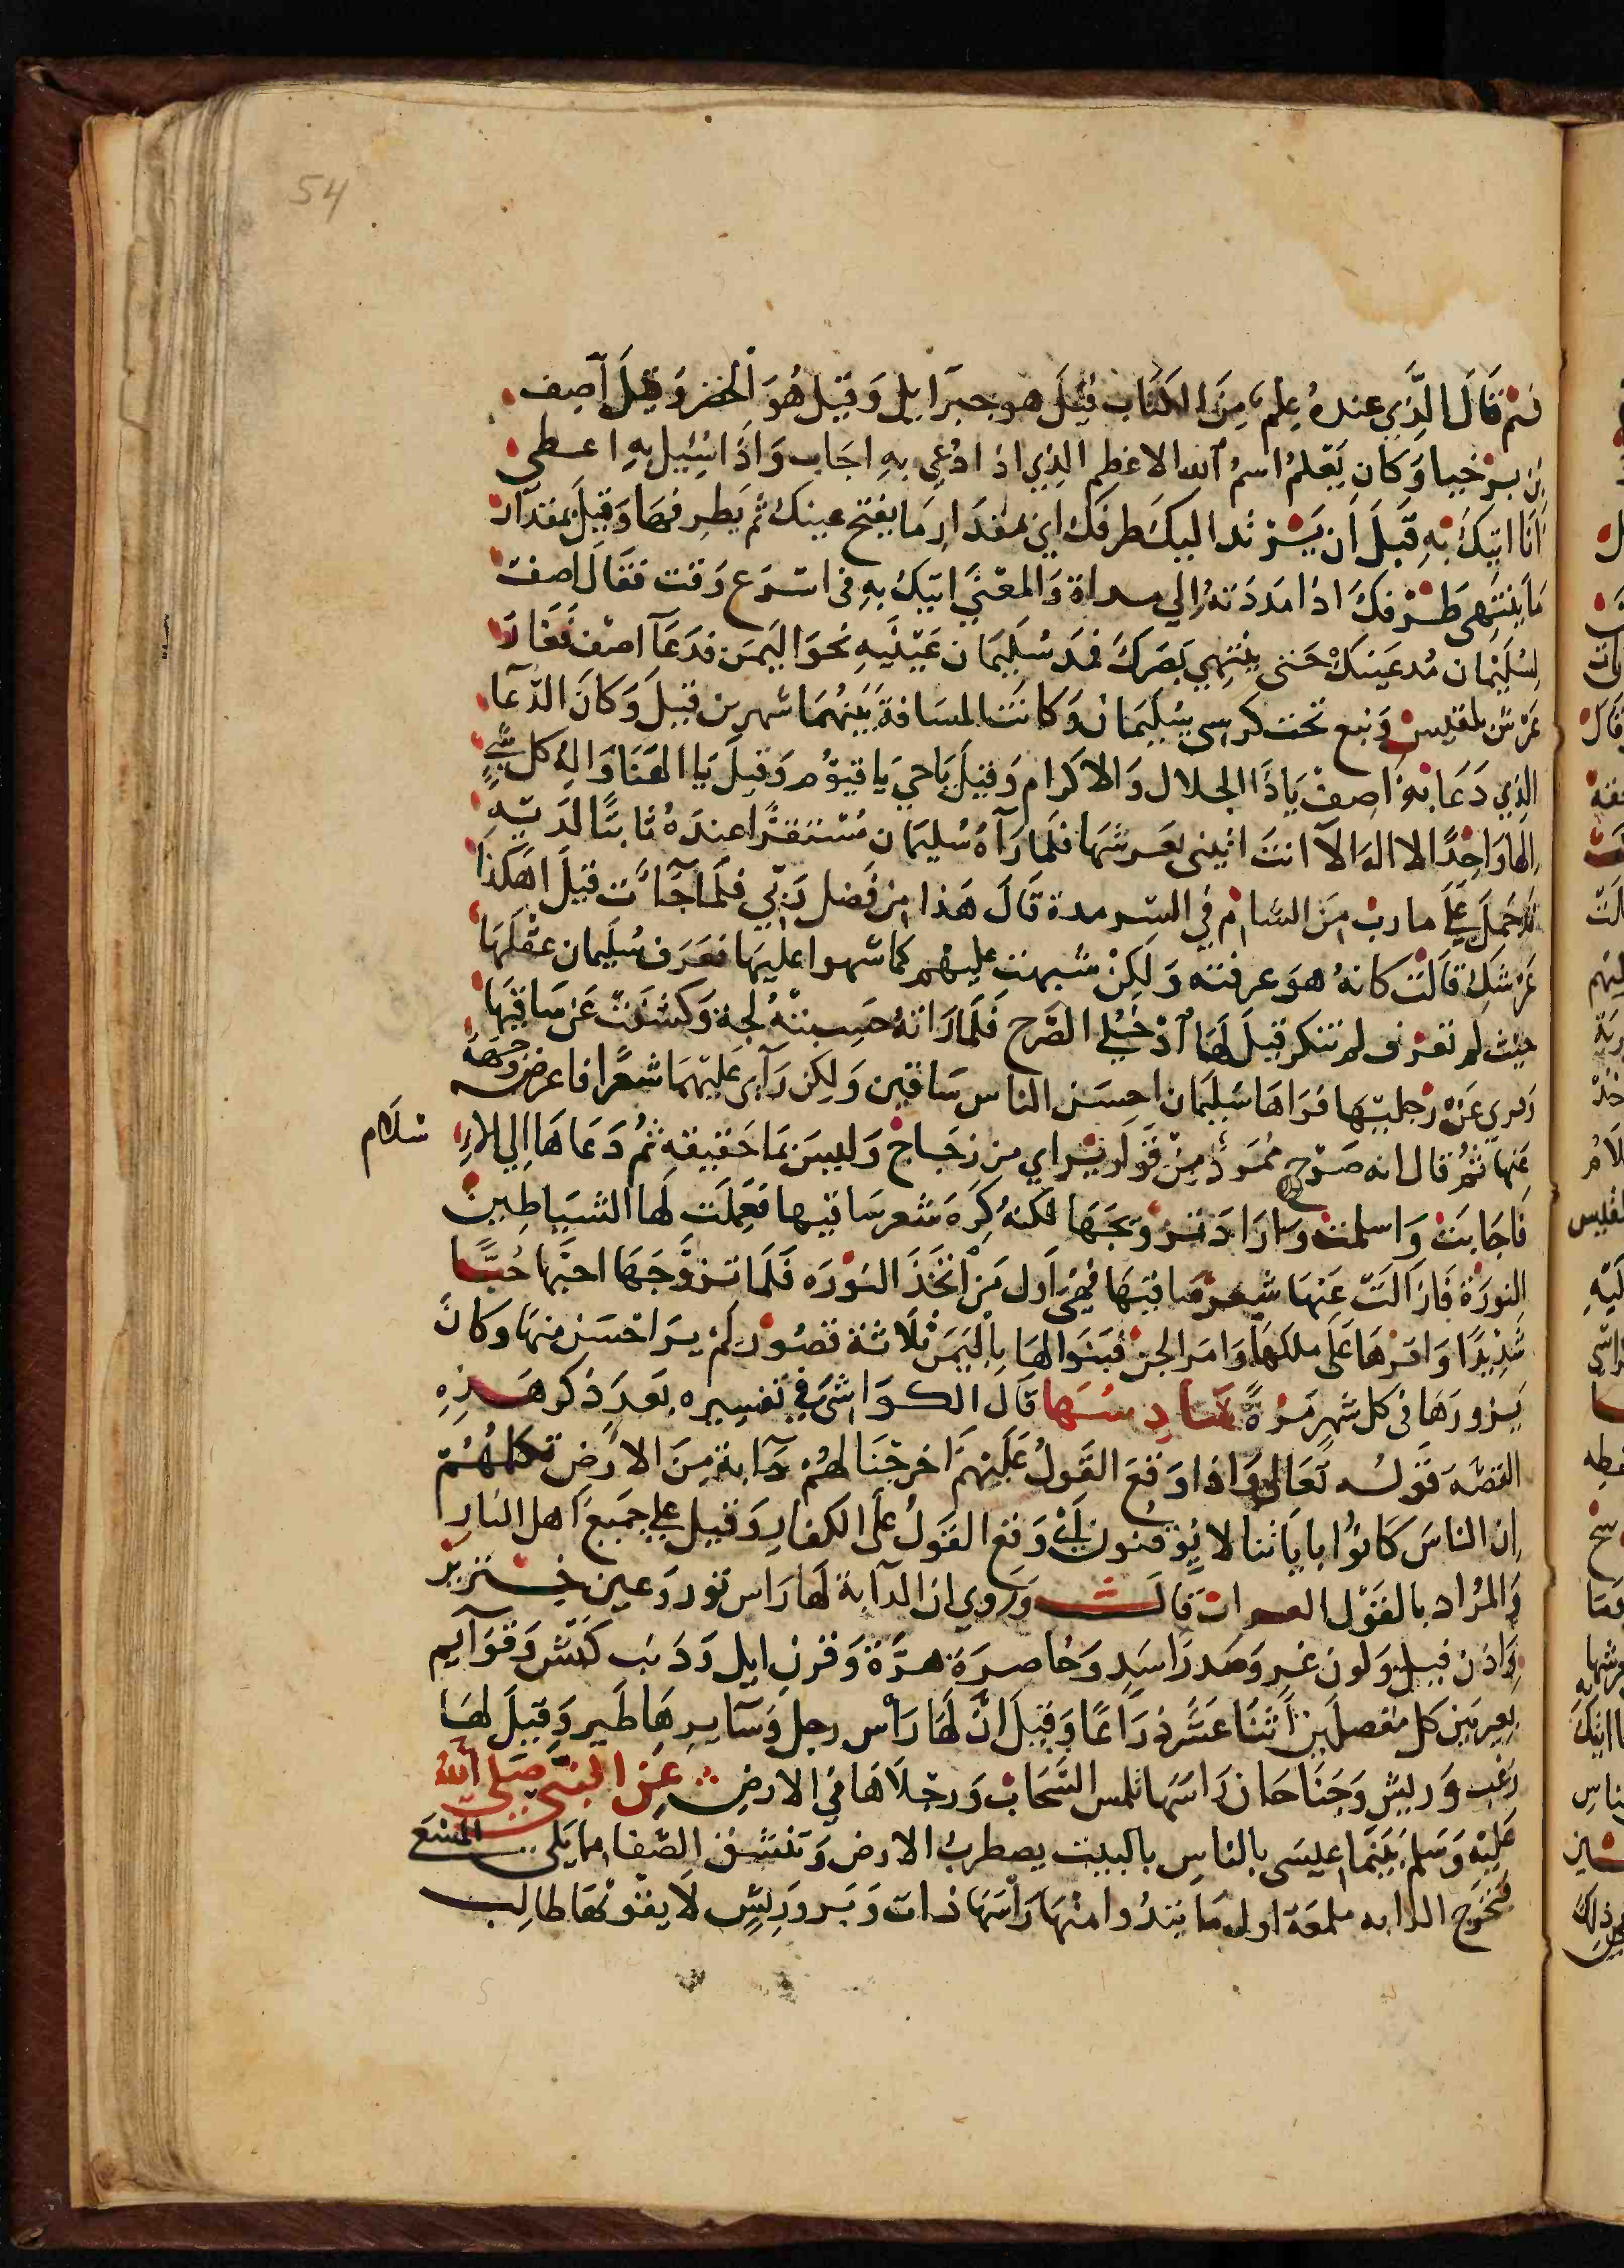 54
ثم قَالَ الَّذِي عندهُ عِلمٌ مِنَ الكتَاب قيلَ هو جبرَايل وَقيل هُوَ الخضر وَقيلَ آصِف
بن برخيا وَكان يَعْلمُ اسمُ الله الاعظم الذِي اذا دُعِي بهِ اجَاب وَاذَا سُئِيل بهِ اعطي
اَنَا اتيكَ بهِ قبلَ اَن يَرْتد اليكَ طرفكَ اي بمقدَارِ مَا يفتح عينك ثم يَطرِفهَا وَقيلَ بمقدَار
مَا ينتَهِى طَرْفكَ اذا مَدَدَتهُ الي مداهُ وَالمعْنَي اتيكَ بهِ في اسْرَع وَقت فقَالَ اصف
لسُليْمان مُد عَينكَ حَتي ينْتهِي بَصَركَ فمَد سُليمَان عَيْنَيهِ نحوَ اليَمن فدَعَا اصف فغَارَ
عَرْش بلقيس وَنبع تحت كرسي سُليمَان وَكانَت المسَافة بَينهُمَا شهرين قيلَ وَكانَ الدعَا
الذِي دَعَا بهِ اصِفْ يَاذَا الجلال وَالاكرام وَقيلَ يَاحي يَا قيوُم وَقيلَ يَا الهنَا وَاله كل شَيْ
الها وَاحِدًا لا اله الا انتَ ائتِني بعَرشهَا فلمَا رَآهُ سُليمَان مُسْتقرًا عندَهُ ثابتًا لدَيْهِ
قد حُملَ عَليَ مارب مِنَ الشام في السر مدة قَالَ هَذا مِن فَضل رَبي فلمَا جَآءَت قيلَ اهَكذَا
عَرْشكِ قالَتْ كانهُ هوَ عرفته وَلكِنْ شبهت عليهم كما شبهوا عليهَا فعَرَف سُليمان عقلهَا
حيث لم تعرف لم تنكر قيلَ لهَا اُدْخُلي الصَّرح فَلمَا رَاتهُ حَسِبتهُ لجة وَكشفت عَن سَاقيهَا
عَنْ رجليهَا فرَاهَا سُليمَان احسَن الناس سَاقين وَلكِن رَآى عَليْهمَا شعرًا فاعرض وَجهَهُ
عنها ثمُ قال انه صَرْح مُمَردُ مِنْ قوَاريْر اي من زجَاج وَليسَ بمَا حَقيقهِ ثم دَعَاهَا الي الا سلام
فاجَابَت وَاسلمت وَارَادَ تزويجَهَا لكنهُ كرِهَ شعر سَاقيها فعَملت لهَا الشيَاطِين
النورَة فازَالَت عَنْهَا شَعر سَاقيهَا فهِيَ اَول مَن اتخَذَ النورَه فَلمَا تزوَّجَهَا احبَّهَا حُبًّا
شدِيدًا وَاقرهَا عَلى ملكهَا وَامَر الجن فبَنوا لهَا باليَمن ثلاثة قصُور لمْ يرَ احْسَن منهَا وكانَ
يَزورَهَا في كل شهر مَرةً سَادِسُهَا قَالَ الكوَاشىَ في تفسِيره بَعدَ ذكر هَذِهِ
القصَّه قوَله تَعَالى وَاذا وَقَعَ القَولُ عَليْهِمَ اَخرجْنَا لهُمْ دَآبة مِنَ الارَض تكلمُهُمْ
ان الناسَ كانوُا باياتنا لا يُوقنون اي وَقع القَولُ عَلى الكفار وَقيل علي جَميع اهل النار
وَالمرَاد بالقَوْل العذاب قالـت وَرُوي ان الدآبة لهَا رَاس ثور وَعين خنزير
وَاذن فيل وَلون نمر وَصَدر اسَدٍ وَخاصرَة هرَّة وَقرن ايل وَذنب كبْش وَقوَآيم
بعِير بَين كل مفصلَين اثنا عشَر ذرَاعًا وَقيلَ انَّ لهَا رَاس رجل وَسَآيرهَا طير وَقيل لهَا
زغب وَريش وَجنَاحَان رَاسهَا تلمس السَّحَاب وَرجْلاهَا في الارض عَن النبي صَلى الله
عَليْهِ وَسَلم بَيْنمَا عيسَى بالناس بالبيت يضطرب الارض وَتنشق الصفا مما يَلي المسْعَى
فتخرج الدابه ملمعَة اول مَا يَبْدُوا منهَا رَاسهَا ذات وَبر وَرِيش لا يفوتهَا طالب